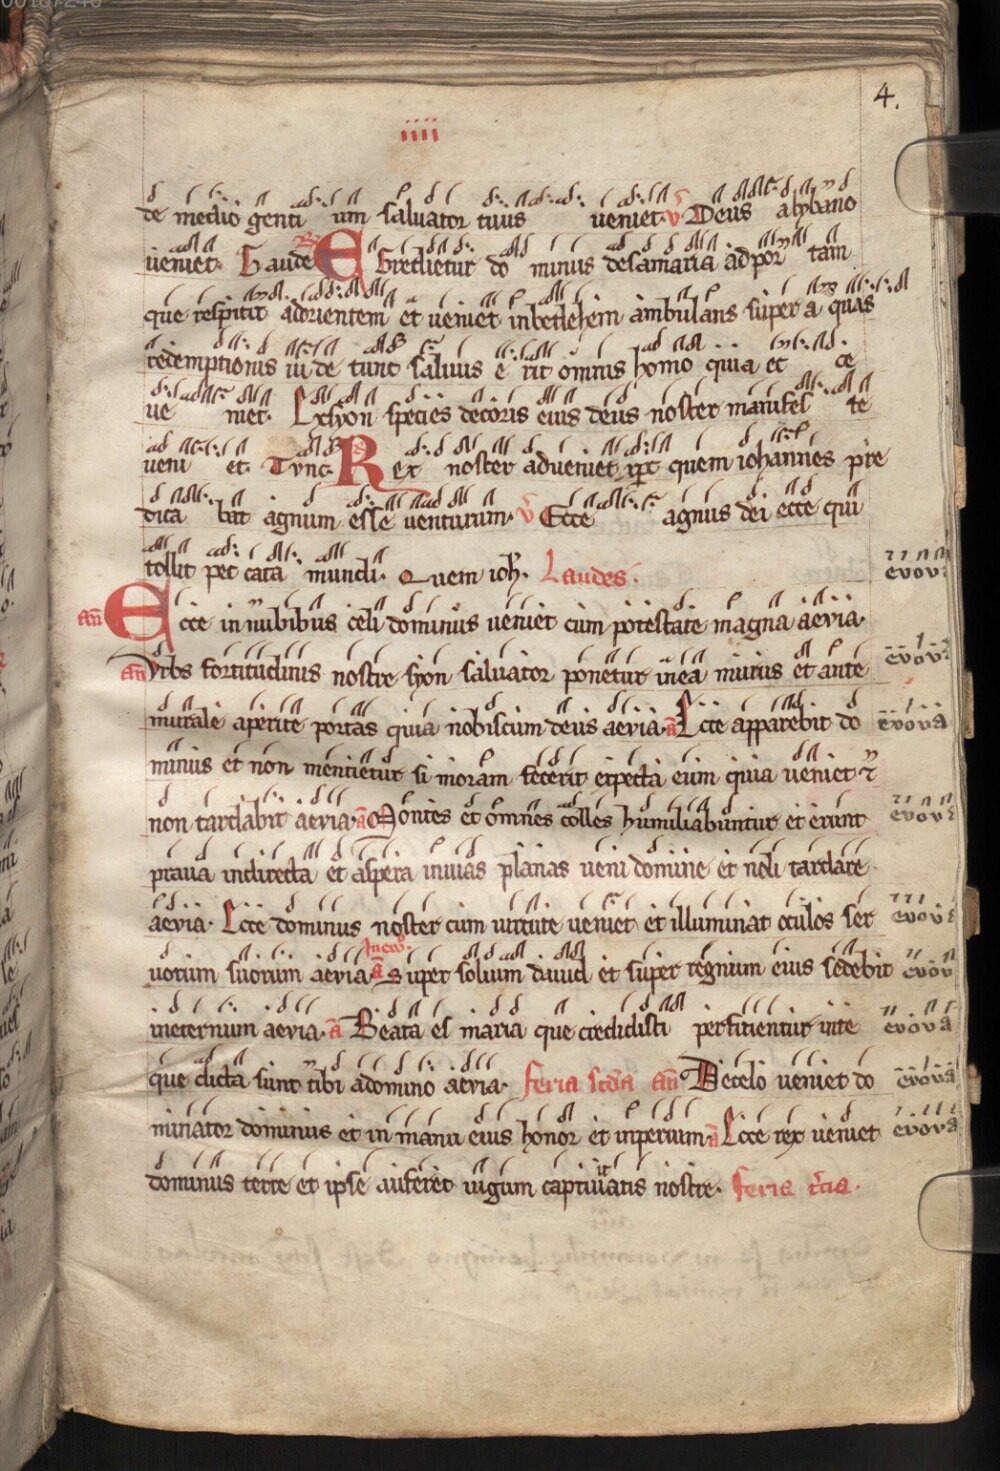 4.
iiii
de medio genti um saluator tuus ueniet. v Deus a lybano
ueniet. Gaude R Egredietur do minus de samaria ad por tam
que respicit ad orientem et ueniet in bethlehem ambulans super a quas
redemptionis iu de tunc saluus e rit omnis homo quia et ce
ue niet. Ex syon species decoris eius deus noster manifes te
veni et. Tunc. R Rex noster adueniet xpc quem iohannes pre
dica bat agnum esse uenturum. v Ecce agnus dei ecce qui
tollit pec cata mundi. Quem ioh. Laudes. evov
an Ecce in nubibus celi dominus ueniet cum potestate magna aevia.
an Vrbs fortitudinis nostre syon saluator ponetur in ea murus et ante evov
murale aperite portas quia nobiscum deus aevia. a Ecce apparebit do evova
minus et non mentietur si moram fecerit expecta eum quia ueniet et
non tardabit aevia. a Montes et omnes colles humiliabuntur et erunt evov
praua in directa et aspera in uias planas ueni domine et noli tardare
aevia. Ecce dominus noster cum uirtute ueniet et illuminat oculos ser evov
uorum suorum aevia. a Super solium dauid et super regnum eius sedebit evov
in eternum aevia. a Beata es maria que credidisti perficientur in te evova
que dicta sunt tibi a domino aevia. feria scda an De celo ueniet do evova
minator dominus et in manu eius honor et inperium. a Ecce rex ueniet evova
dominus terre et ipse auferet iugum captiuitatis nostre. feria tcia.